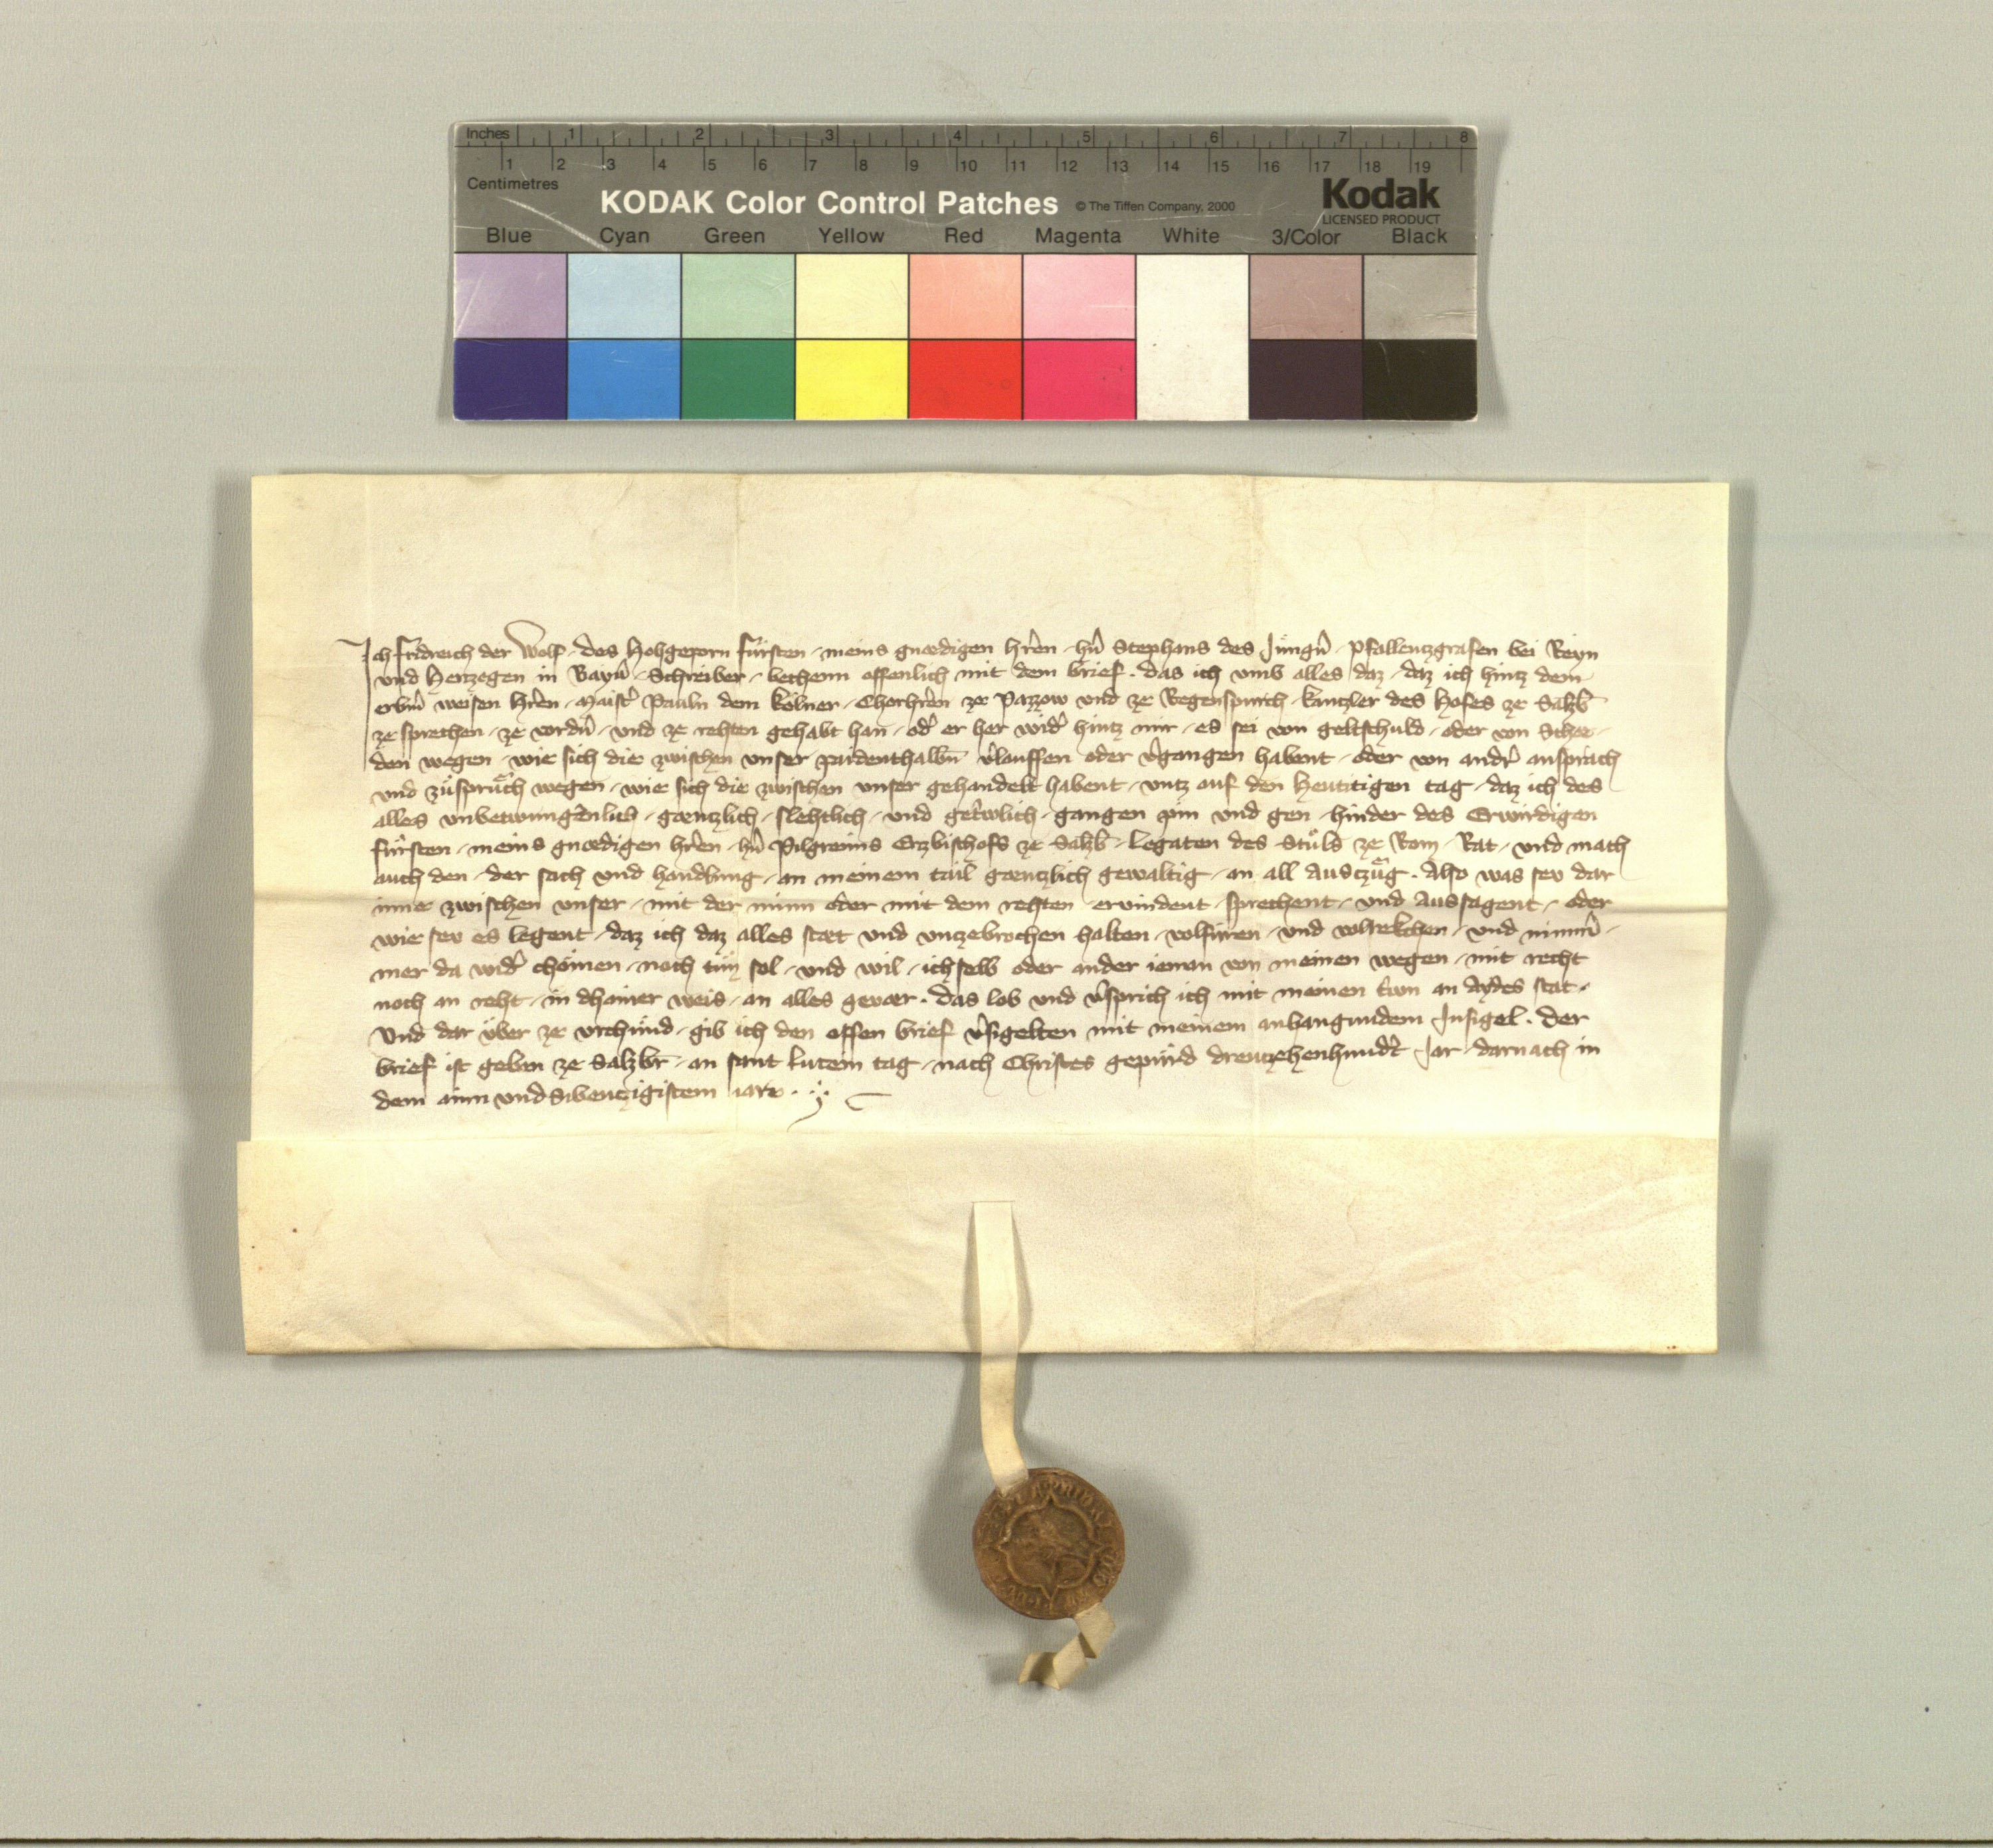 Inches 1 2 3 4 5 6 7 8
1 2 3 4 5 6 7 8 9 10 11 12 13 14 15 16 17 18 19
Centimetres
KODAK Color Control Patches © The Tiffen Company, 2000 Kodak
LICENSED PRODUCT
Blue Cyan Green Yellow Red Magenta White 3/Color Black
Ich fridreich der Wolf des Hohgeporn fürsten meins gnædigen hr̄en hn̄ Stephans des Jungn̄ pfallentzgrafen bei Reyn
und Hertzogen in Bayrn̄ Schreiber bechenn offenlich mit dem brief. das ich umb alles daz daz ich hintz dem
erbn̄ weisen hr̄en Maistr̄ Pauln dem Kölner Chorhr̄en ze Pazzow und ze Regenspurch Kantzler des Hofes ze Salzb̄
ze sprechen ze vordn̄ und ze rehten gehabt han od̄ er her wid̄ hintz mir es sei von geltschuld oder von Schæ
den wegen wie sich die zwischen unser paidenthalbn̄ v̄lauffen oder v̄gangen habent oder von andr̄ ansprach
und zůsprüch wegen wie sich die zwischen unser gehandelt habent untz auf den heutitigen tag daz ich des
alles unbetwungenlich gæntzlich slehtlich und getr̄wlich gangen pin und gen hinder des Erwirdigen
fürsten meins gnædigen hr̄en hn̄ Pilgreims Erzbischofs ze Salzb̄ Legaten des Stůls ze Rom Rat und mach
auch den der sach und handlung an meinem tail gæntzlich gewaltig an all Auszüg. Also was sey dar
inne zwischen unser mit der minn oder mit dem rehten ervindent sprechent und Aussagent oder
wie sey es legent daz ich daz alles stæt und unzebrochen halten volfüren und volrekchen und nimm̄
mer da wid̄ chömen noch tůn sol und wil ich selb oder ander ieman von meinen wegen mit recht
noch an reht in dhainer weis an alles gevær. das lob und v̄sprich ich mit meinen tr̄wn an Aydes stat.
Und dar über ze urchünd gib ich den offen brief v̄sigelten mit meinem anhangundem Insigel. Der
brief ist geben ze Salzbr̄ an sant Lucein tag nach Christes gepürd dreuzehenhundr̄t Jar darnach in
dem ainn und Sibentzigistem iare.